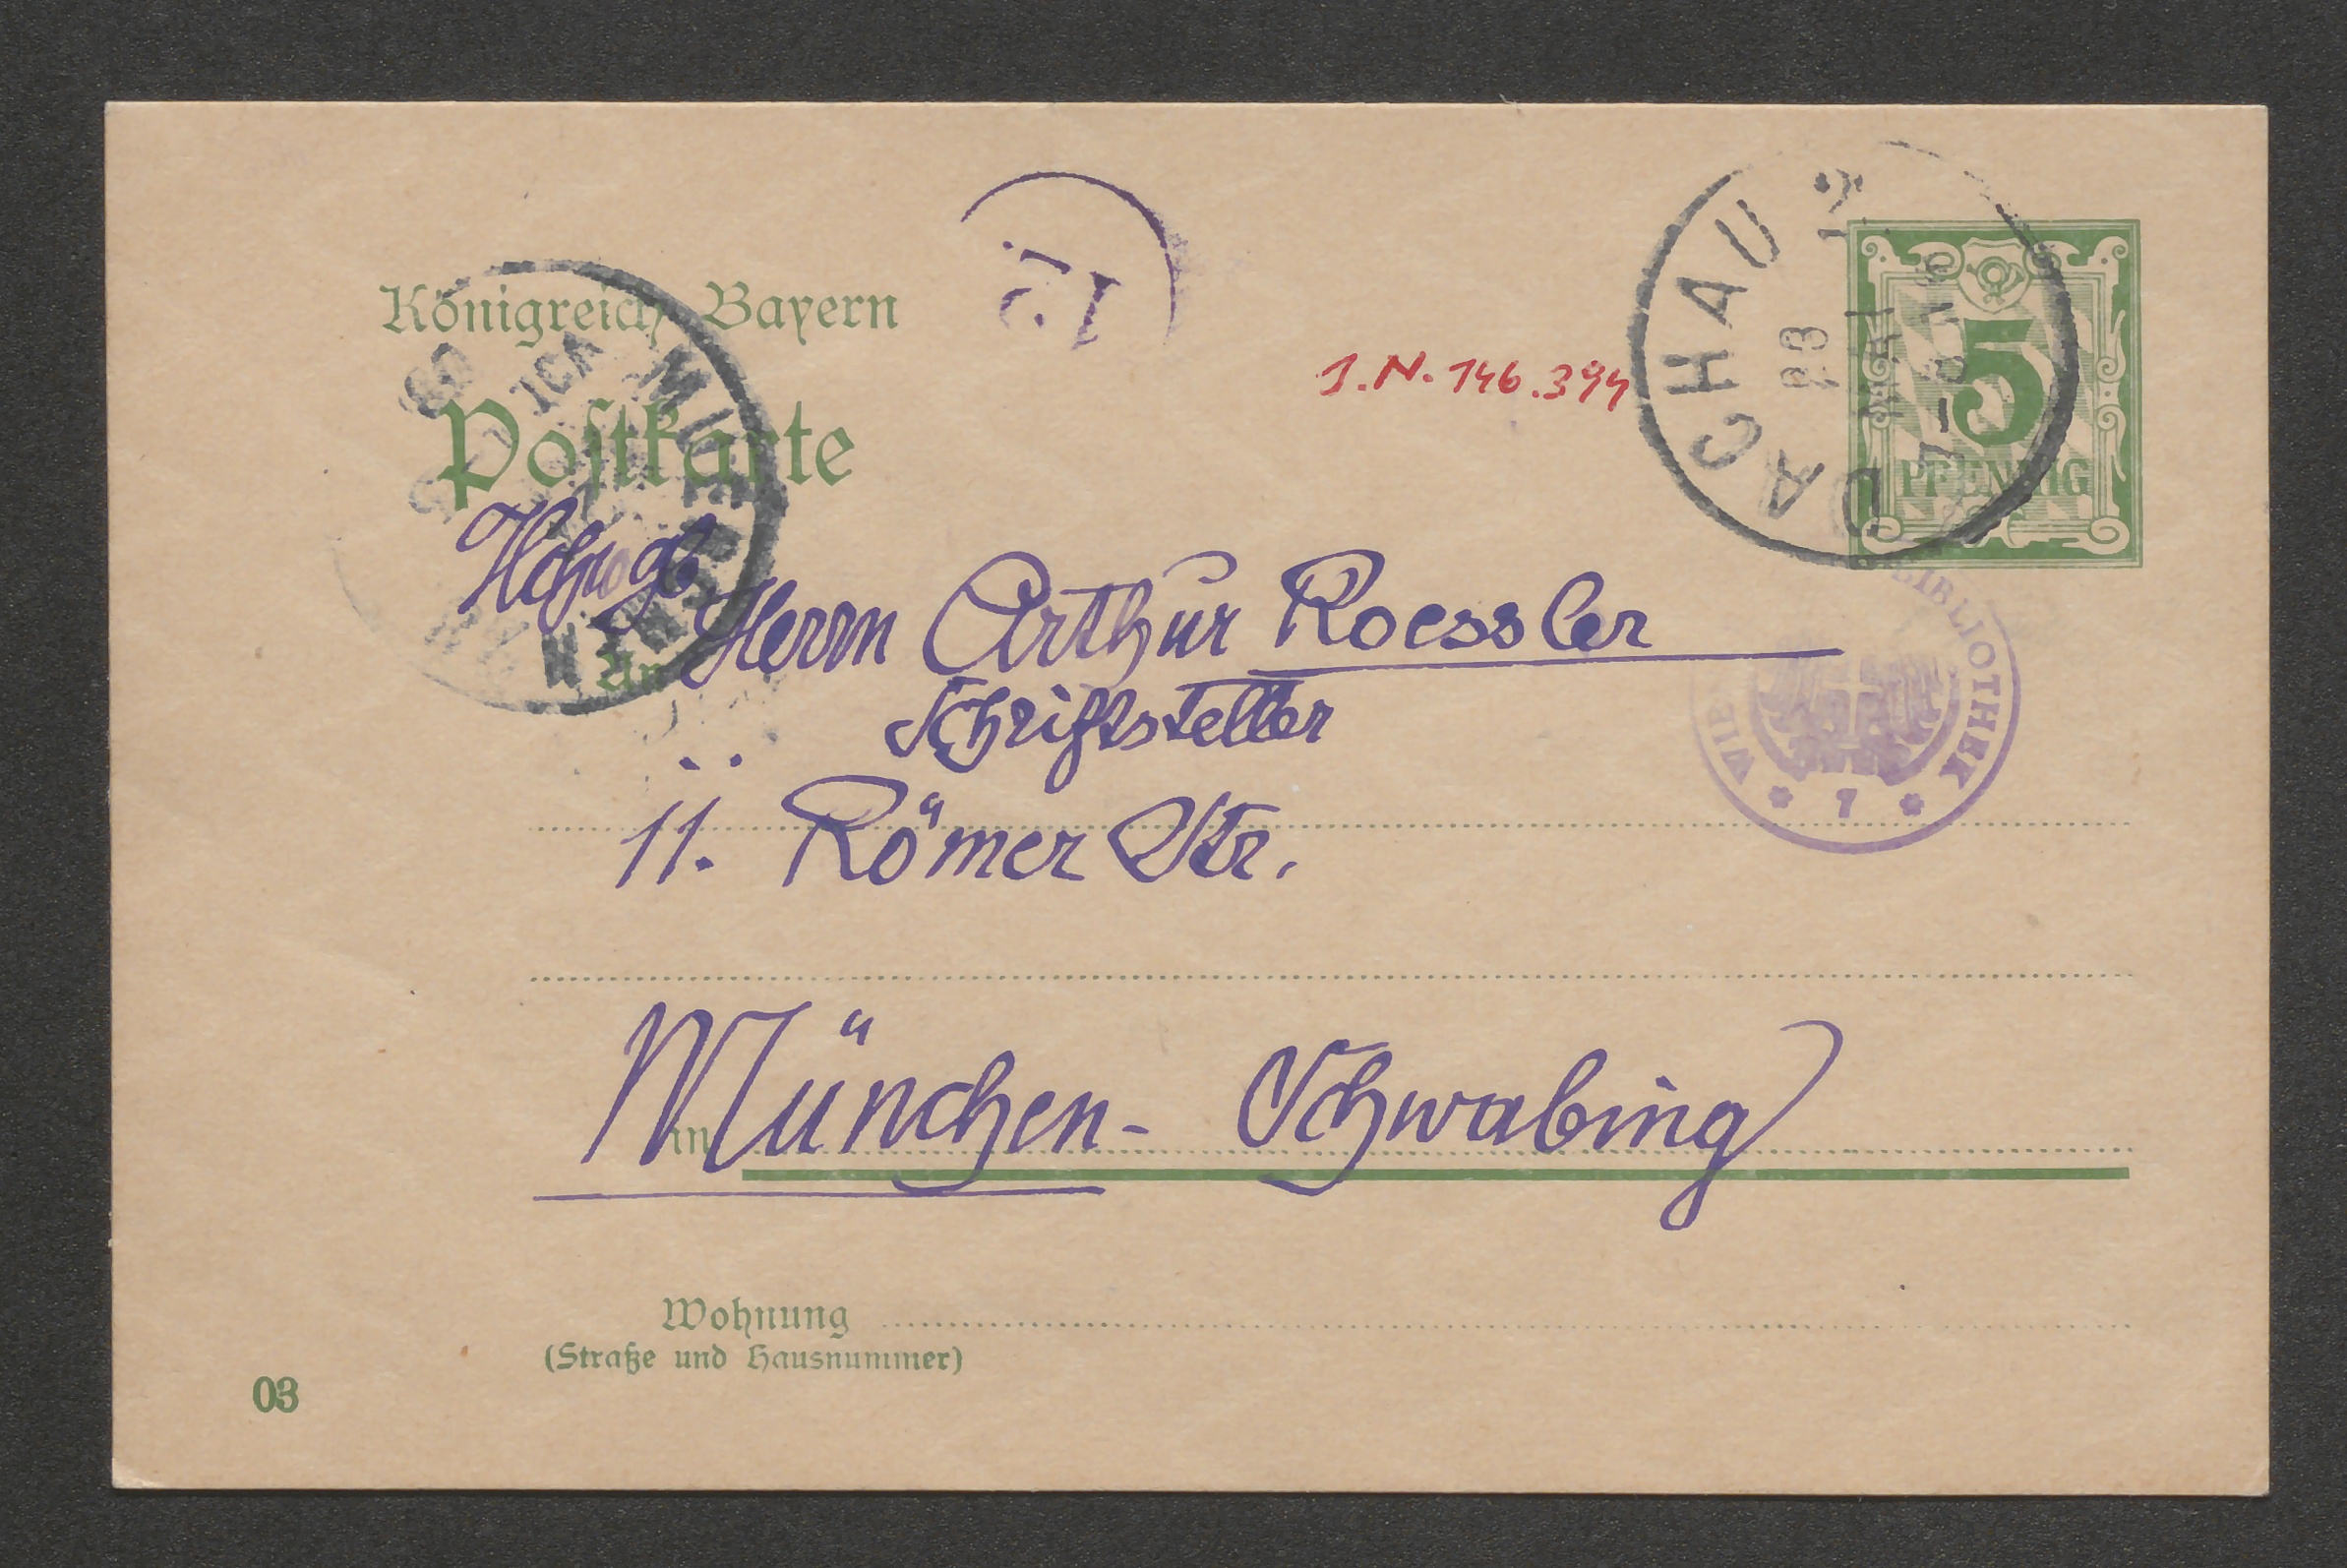 Königreich Bayern
Postkarte
12
I.N. 146.394
DACHAU
23
MAI
5
PFENNIG
MÜNCHEN
Herrn Arthur Roessler
An
Schriftsteller
11. Römer Str.
BIBLIOTHEK
WIE
* 7 *
in München - Schwabing
Wohnung
(Straße und Hausnummer)
03